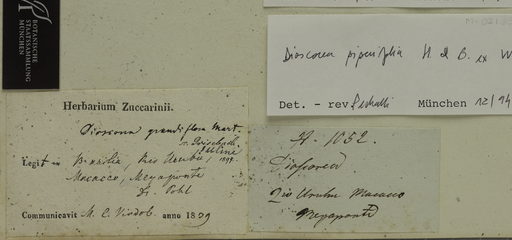 BOTANISCHE
STAATSSAMMLUNG
MÜNCHEN
Dioscorea piperifolia H. & B. ex W
Det. - rev. München 12/94
Herbarium Zuccarinii.
Dioscorea grandiflora Mart.
v. Griseb.
Legit in Brasilia, Rio Urubu,
Macacco, Megaponte
Dr. Pohl
Communicavit M. C. Vindob. anno 1839
1052.
Dioscorea
Rio Urubu Macacco
Megaponte